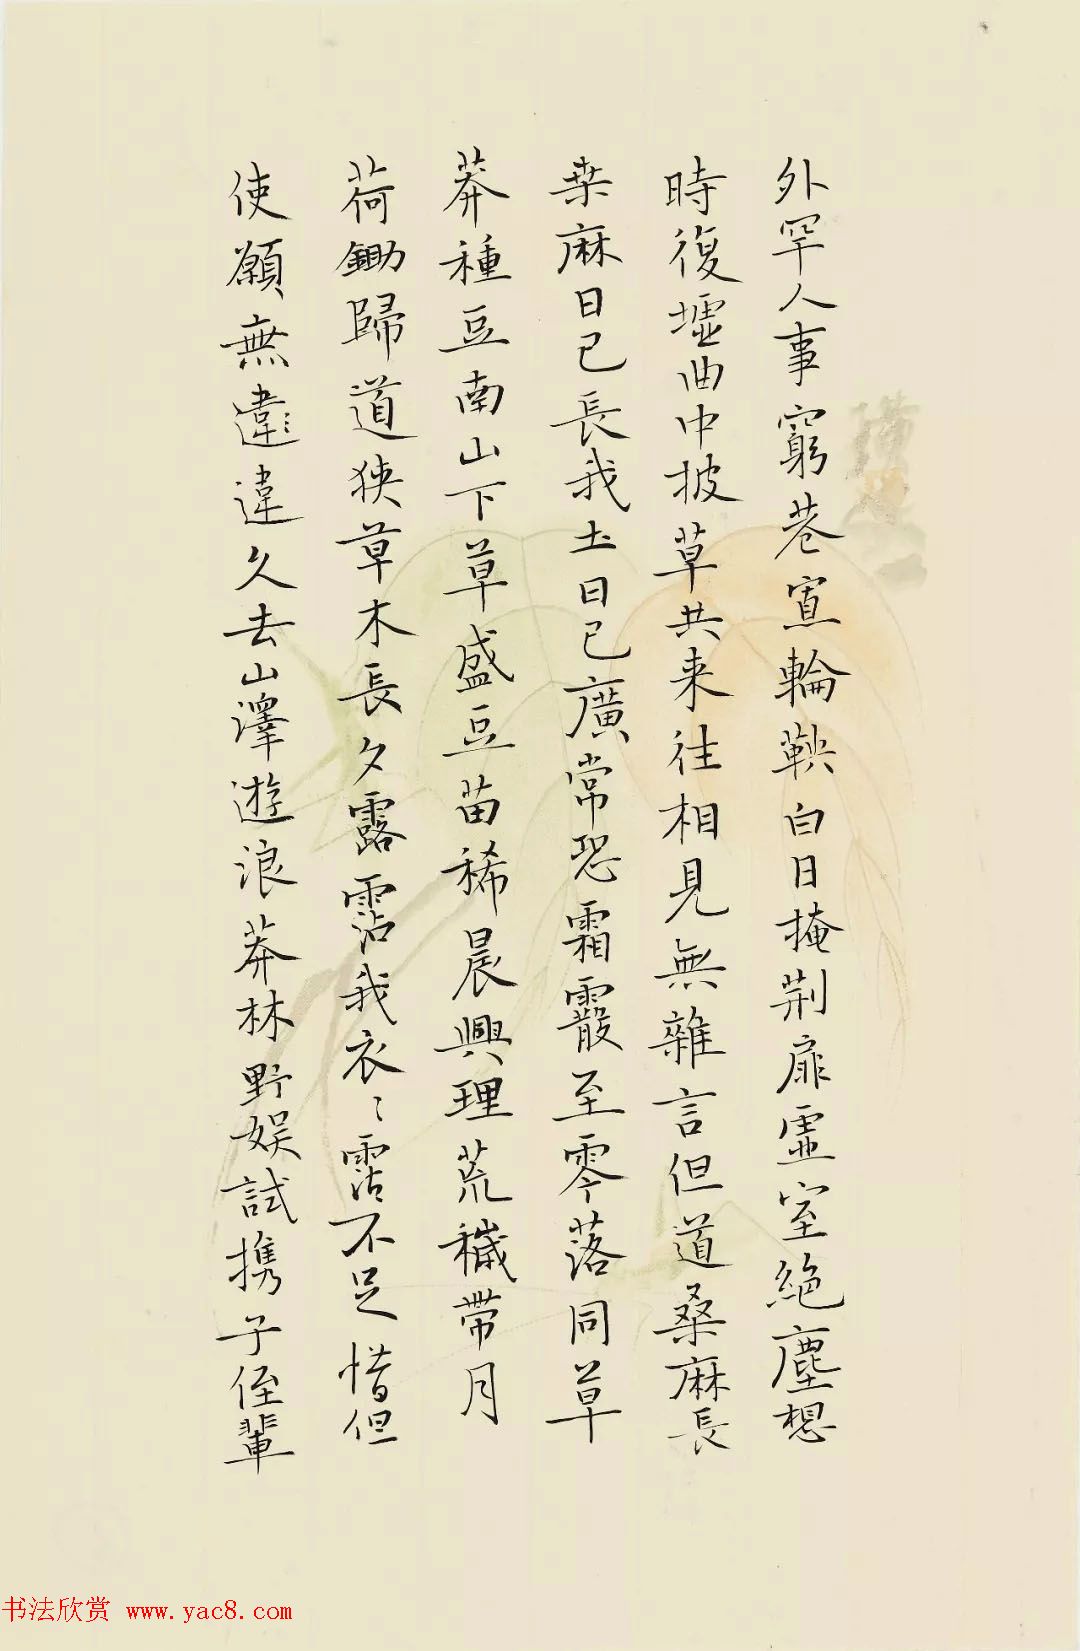 外罕人事窮巷寡輪鞅白日掩荆扉虛室絶塵想
時復墟曲中披草共来往相見無雜言但道桑麻長
桒麻日已長我圡日已廣常恐霜霰至零落同草
莽種豆南山下草盛豆苗稀晨興理荒穢帶月
荷鋤歸道狹草木長夕露霑我衣〻霑不足惜但
使願無違違久去山澤遊浪莽林野娱試携子侄輩
书法欣赏 www.yac8.com